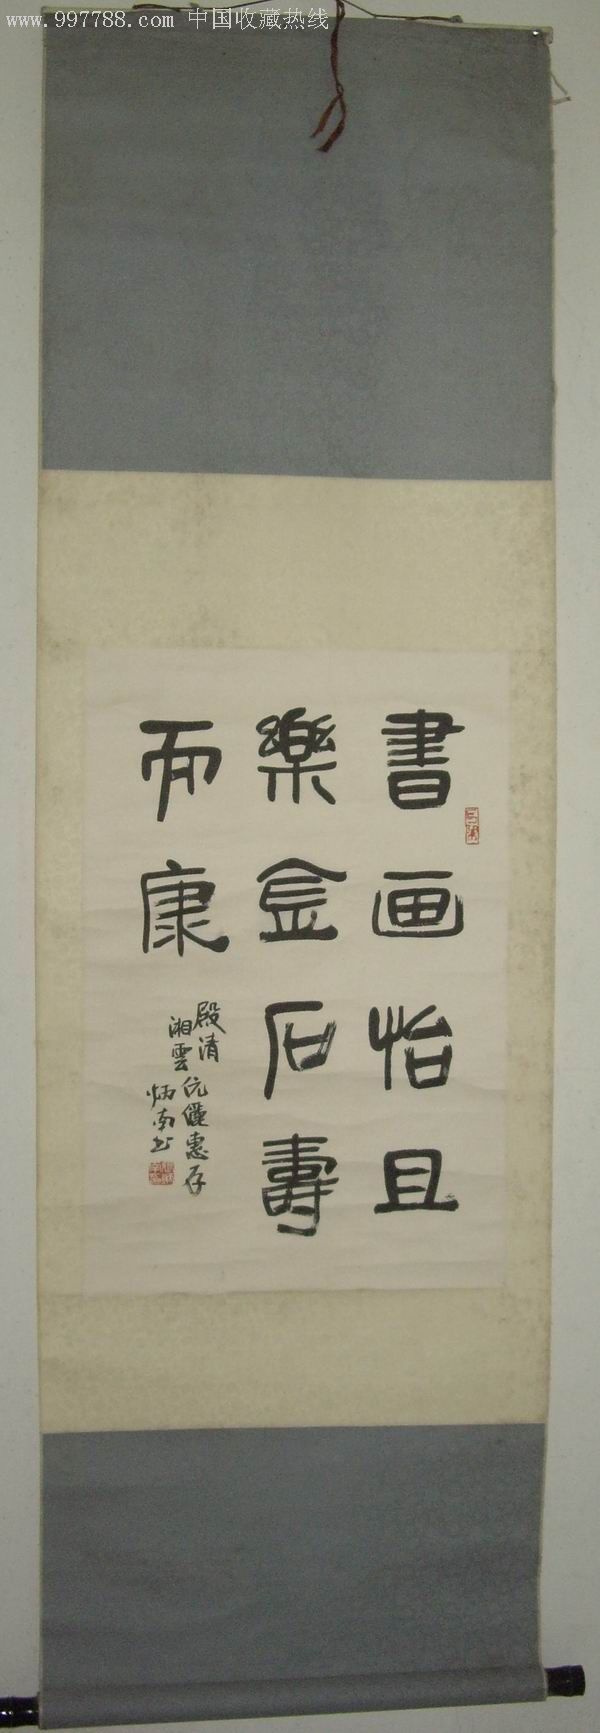 www.997788.com 中国收藏热线
書画怡且
樂金石壽
而康
殿清
湘雲伉儷惠存
炳南书